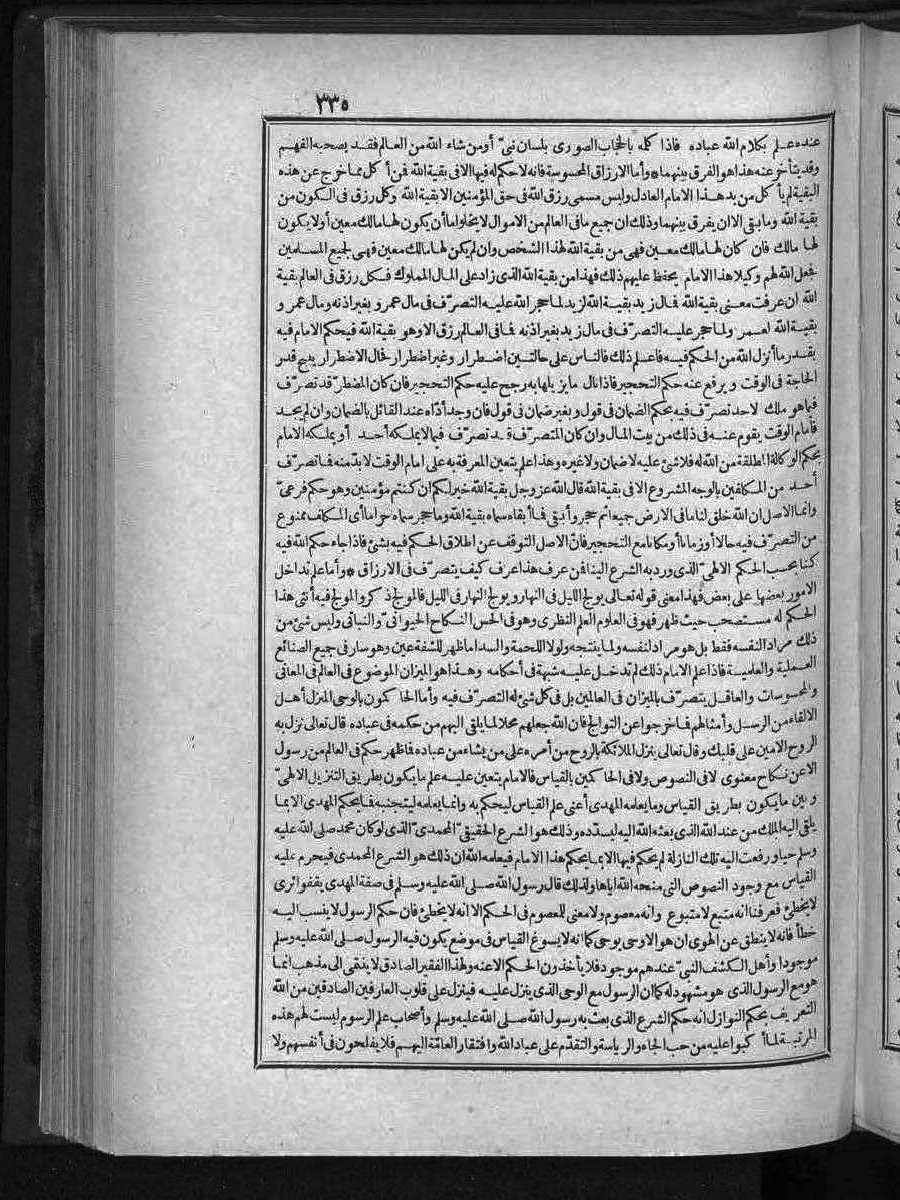 ٣٣٥
عنده علم بكلام الله عباده فاذا كلمه بالحجاب الصورى بلسان نبىّ أو من شاء الله من العالم فقد يصحبه الفهم
وقد يتأخر عنه هذا هو الفرق بينهما * وأما الارزاق المحسوسة فانه لا حكم له فيها الا فى بقية الله فمن أكل مما خرج عن هذه
البقية لم يأكل من يد هذا الامام العادل وليس مسمى رزق الله فى حق المؤمنين الا بقية الله وكل رزق فى الكون من
بقية الله وما بقى الا ان يفرق بينهما وذلك ان جميع ما فى العالم من الاموال لا يخلو اما أن يكون لها مالك معين أو لا يكون
لها مالك فان كان لها مالك معين فهى من بقية الله لهذا الشخص وان لم يكن لها مالك معين فهى لجميع المسلمين
فجعل الله لهم وكيلا هذا الامام يحفظ عليهم ذلك فهذا من بقية الله الذى زاد على المال المملوك فكل رزق فى العالم بقية
الله ان عرفت معنى بقية الله فمال زيد بقية الله لزيد لما حجر الله عليه التصرّف فى مال عمرو بغير اذنه ومال عمرو
بقية الله لعمر ولما حجر عليه التصرّف فى مال زيد بغير اذنه فما فى العالم رزق الا وهو بقية الله فيحكم الامام فيه
بقدر ما أنزل الله من الحكم فيه فاعلم ذلك فالناس على حالتين اضطرار وغير اضطرار فحال الاضطرار يبيح قدر
الحاجة فى الوقت ويرفع عنه حكم التحجير فاذا نال ما يزيلها به رجع عليه حكم التحجير فان كان المضطرّ قد تصرّف
فيما هو ملك لاحد تصرّف فيه بحكم الضمان فى قول وبغير ضمان فى قول فان وجد أدّاه عند القائل بالضمان وان لم يجد
فامام الوقت يقوم عنه فى ذلك من بيت المال وان كان المتصرّف قد تصرّف فيما لا يملكه أحد أو يملكه الامام
بحكم الوكالة المطلقة من الله له فلا شئ عليه لا ضمان ولا غيره وهذا علم يتعين المعرفة به على امام الوقت لا بدّ منه فما تصرّف
أحد من المكلفين بالوجه المشروع الا فى بقية الله قال الله عز وجل بقية الله خير لكم ان كنتم مؤمنين وهو حكم فرعىّ
وانما الاصل ان الله خلق لنا ما فى الارض جميعا ثم حجر وأبقى فما أبقاه سماه بقية الله وما حجر سماه حراما أى المكلف ممنوع
من التصرّف فيه حالا أو زمانا أو مكانا مع التحجير فانّ الاصل التوقف عن اطلاق الحكم فيه بشئ فاذا جاء حكم الله فيه
كنا بحسب الحكم الالهىّ الذى ورد به الشرع الينا فمن عرف هذا عرف كيف يتصرّف فى الارزاق * وأما علم تداخل
الامور بعضها على بعض فهذا معنى قوله تعالى يولج الليل فى النهار ويولج النهار فى الليل فالمولج ذكر والمولج فيه أنثى هذا
الحكم له مستصحب حيث ظهر فهو فى العلوم العلم النظرى وهو فى الحس النكاح الحيوانىّ والنباتى وليس شئ من
ذلك مراد النفسه فقط بل هو مراد لنفسه ولما ينتجه ولولا اللحمة والسدا ما ظهر للشقة عين وهو سار فى جميع الصنائع
العملية والعلمية فاذا علم الامام ذلك لم تدخل عليه شبهة فى أحكامه وهذا هو الميزان الموضوع فى العالم فى المعانى
والمحسوسات والعاقل يتصرّف بالميزان فى العالمين بل فى كل شئ له التصرّف فيه وأما الحاكمون بالوحى المنزل أهل
الالقاء من الرسل وأمثالهم فما خرجوا عن التوالج فان الله جعلهم محلا لما يلقى اليهم من حكمه فى عباده قال تعالى نزل به
الروح الامين على قلبك وقال تعالى ينزل الملائكة بالروح من أمره على من يشاء من عباده فما ظهر حكم فى العالم من رسول
الا عن نكاح معنوى لا فى النصوص ولا فى الحاكمين بالقياس فالامام يتعين عليه علم ما يكون بطريق التنزيل الالهىّ
وبين ما يكون بطريق القياس وما يعلمه المهدى أعنى علم القياس ليحكم به وانما يعلمه ليتجنبه فما يحكم المهدى الا بما
يلقى اليه الملك من عند الله الذى بعثه الله اليه ليسدّده وذلك هو الشرع الحقيقىّ المحمدىّ الذى لو كان محمد صلى الله عليه
وسلم حيا ورفعت اليه تلك النازلة لم يحكم فيها الا بما يحكم هذا الامام فيعلمه الله ان ذلك هو الشرع المحمدى فيحرم عليه
القياس مع وجود النصوص التى منحه الله اياها ولذلك قال رسول الله صلى الله عليه وسلم فى صفة المهدى يقفو اثرى
لا يخطئ فعرفنا انه متبع لا متبوع وانه معصوم ولا معنى للمعصوم فى الحكم الا انه لا يخطئ فان حكم الرسول لا ينسب اليه
خطأ فانه لا ينطق عن الهوى ان هو الا وحى يوحى كما انه لا يسوغ القياس فى موضع يكون فيه الرسول صلى الله عليه وسلم
موجودا وأهل الكشف النبىّ عندهم موجود فلا يأخذون الحكم الا عنه ولهذا الفقير الصادق لا ينتمى الى مذهب انما
هو مع الرسول الذى هو مشهود له كما ان الرسول مع الوحى الذى ينزل عليه فينزل على قلوب العارفين الصادقين من الله
التعريف بحكم النوازل انه حكم الشرع الذى بعث به رسول الله صلى الله عليه وسلم وأصحاب علم الرسوم ليست لهم هذه
المرتبة لما أكبوا عليه من حب الجاه والرياسة والتقدّم على عباد الله وافتقار العامّة اليهم فلا يفلحون فى أنفسهم ولا